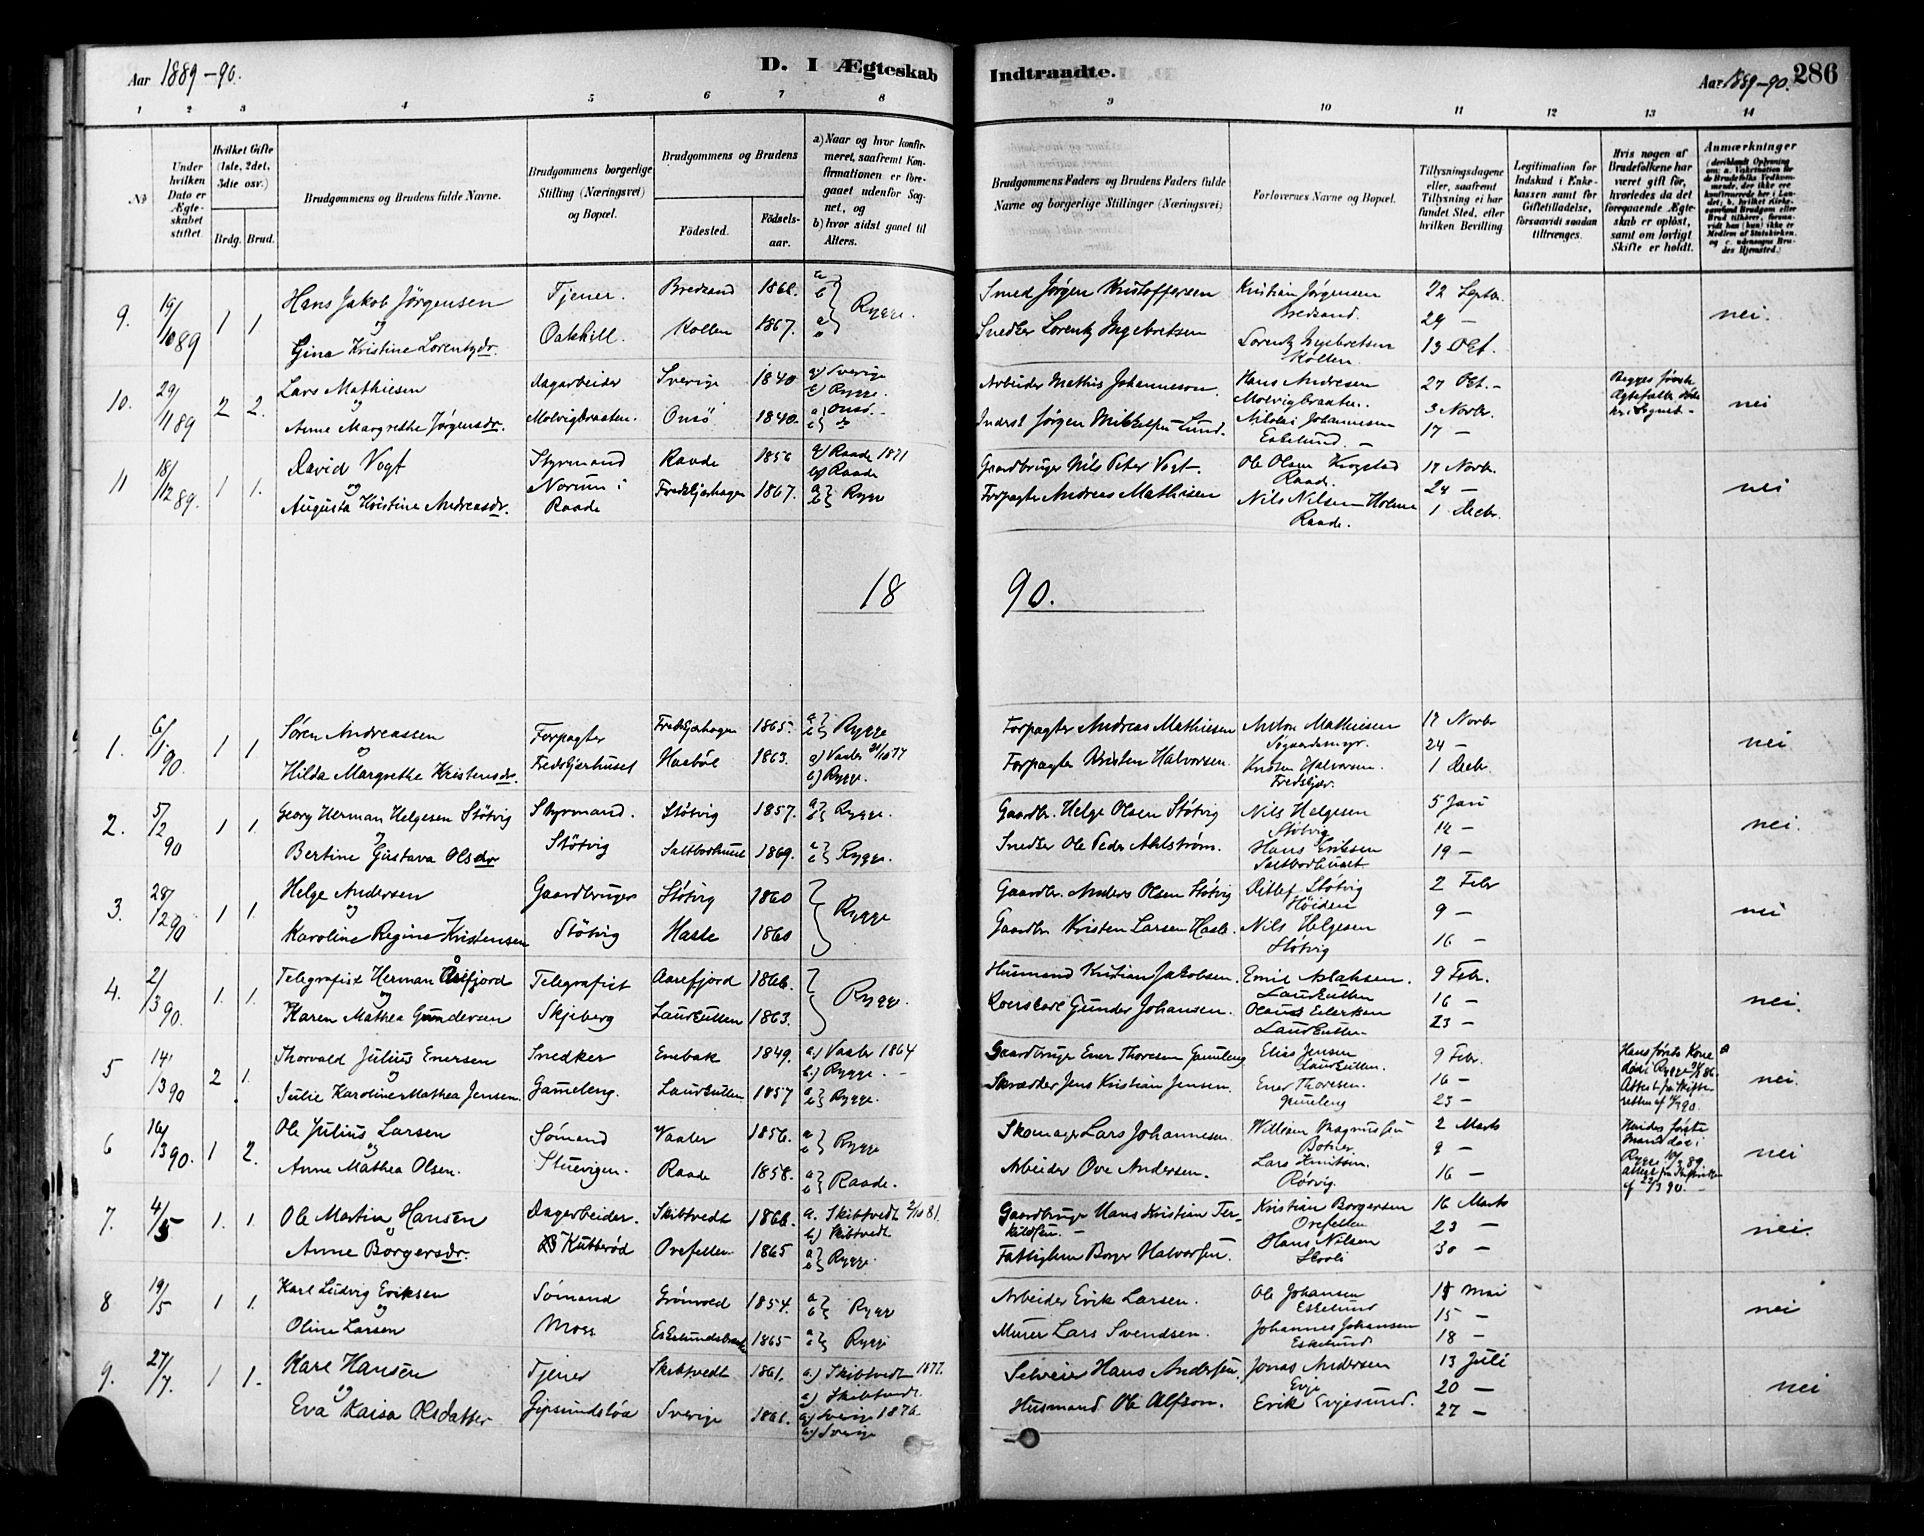 Aar 1889-90.
D. I Ægteskab
Indtraadte.
Aar 1889-90.
286
1 2 3 4 5 6 7 8 9 10 11 12 13 14
No
Under hvilken Dato er Ægteskabet stiftet.
Hvilket Gifte (1ste, 2det, 3die osv.)
Brdg. Brud.
Brudgommens og Brudens fulde Navne.
Brudgommens borgerlige Stilling (Næringsvei) og Bopæl.
Brudgommens og Brudens
Fødested.
Fødselsaar.
a) Naar og hvor konfirmeret, saafremt Konfirmationen er foregaaet udenfor Sognet, og
b) hvor sidst gaaet til Alters.
Brudgommens Faders og Brudens Faders fulde Navne og borgerlige Stillinger (Næringsvei)
Forlovernes Navne og Bopæl.
Tillysningsdagene eller, saafremt Tillysning ei har fundet Sted, efter hvilken Bevilling
Legitimation for Indskud i Enkekassen samt for Giftetilladelse, forsaavidt saadan tiltrænges.
Hvis nogen af Brudefolkene har været gift før, hvorledes da det foregaaende Ægteskab er opløst, samt om lovligt Skifte er holdt.
Anmærkninger
9. 19/10 89 1 1. Hans Jakob Jørgensen Tjener. Bredsand 1868. Rygge. Smed Jørgen Kristoffersen Kristian Jørgensen Bredsand. 22 Septr. nei.
og Gina Kristine Lorentzdr. Oakhill. Kollen 1867. Snedker Lorentz Ingebretsen Lorentz Ingebretsen Kollen. 29 - 13 Okt.
10. 29/11 89 2 2. Lars Mathiesen Dagarbeider Sverige 1840. a) Sverige b) Rygge. Arbeider Mathis Johanneson. Hans Andresen Molvigbraaten. 27 Oct. - nei
og Anne Margrethe Jørgensdr. Molvigbraaten. Onsö 1840. a) Onsö. Inderst Jørgen Mikkelsen Lund. Nikolai Johannesen Eskelund. 3 Novbr. 17 -
11 18/12 89. 1 1. David Vogt Styrmand Raade 1856 a) Raade 1871 b) Raade Gaardbruger Nils Peter Vogt. Ole Olsen Krogstad Raade. 17 Novbr. nei
og Augusta Kristine Andreasdr. Norum i Raade Fredskjærhagen 1867. Rygge Forpagter Andreas Mathisen Nils Nilsen Holme Raade. 24 - 1 Decbr.
18 90.
1. 6/1 90. 1 1 Søren Andreassen Forpagter Fredskjærhagen 1865. Rygge Forpagter Andreas Mathiesen Anton Mathiesen Søgaardsmyr. 17 Novbr nei
og Hilda Margrethe Kristensdr. Fredskjærhuset Haabøl 1863. a) Vaaler 21/10 77 b) Rygge. Forpagter Kristen Halvorsen. Kristen Halvorsen. Fredskjær. 24 - 1 Decbr.
2. 5/2 90 1 1. Georg Herman Helgesen Støtvig Styrmand. Støtvig 1857. Rygge. Gaardbr. Helge Olsen Støtvig Nils Helgesen Støtvig 5 Jan nei.
og Bertine Gustava Olsdr Støtvig Saltbodhuset 1869. Rygge. Snedker Ole Peder Ahlstrøm. Hans Eriksen Saltbodhuset 12 - 19 -
3. 28/2 90 1 1. Helge Andersen Gaardbruger Støtvig 1860 Rygge Gaardbr. Anders Olsen Støtvig Ditlef Støtvig Høiden 2 Febr nei
og Karoline Regine Kristensen Støtvig Hasle 1860 Gaardbr. Kristen Larsen Hasle. Nils Helgesen Støtvig 9 - 16 -
4. 2/3 90. 1. 1. Telegrafist Herman Årefjord Telegrafist Aarefjord 1866. Rygge. Husmand Kristian Jakobsen. Emil Aslaksen. Laurkullen 9 Febr. nei.
og Karen Mathea Gundersen Skjeberg Laurkullen 1863. Gunder Johansen. Olaus Eilersen Laurkullen 16 - 23 -
5 14/3 90 2 1. Thorvald Julius Enersen Snedker Enebak 1849. a) Vaaler 1864 b) Rygge. Gaardbruger Ener Thoresen Gameleng Elias Jensen Laurkullen. 9 Febr. Hans første Kone død i Rygge nei.
og Julie Karoline Mathea Jensen. Gameleng. Laurkullen 1857 Rygge. Skrædder Jens Kristian Jensen. Ener Thoresen. Gameleng 16 - 23 -
6 16/3 90. 1 2. Ole Julius Larsen Sømand Vaaler 1856. Rygge Skomager Lars Johannesen. William Magnussen Botner. 2 Marts nei
og Anne Mathea Olsen. Stuevigen. Raade 1858. Raade. Arbeider Ove Andersen. Lars Knutsen. Rørvig. 9 - 16 -
7. 4/5 1. 1. Ole Martin Hansen Dagarbeider. Skibtvedt 1866. a. Skibtvedt 2/10 81. b) Skibtvedt Gaardbruger Hans Kristian Terkildsen. Kristian Borgersen Ovefellen 16 Marts nei.
og Anne Borgersdr. Kubberød Ovefellen 1865 Rygge. Fattiglem Borger Halvorsen. Hans Nilsen 23 - 30 -
8 19/5 1 1. Karl Ludvig Eriksen Sømand Grönvold 1854. Rygge Arbeider Erik Larsen. Ole Johansen Eskelund Mai nei
og Oline Larsen Moss 1865 Rygge Murer Lars Svendsen. Johannes Johansen Eskelund 15 - 18 -
9. 27/7. 1 1. Karl Hansen Tjener Skibtvedt 1861. a.) Skibtvedt 1877. Skibtvedt. Selveier Hans Andersen. Jonas Andersen Evje 13 Juli nei
og Eva Kaisa Olsdatter Gipsundsløa Sverige 1861. a) Sverige 1876. b) Sverige Husmand Ole Alfson. Erik Evjesund. 20 - 27 -